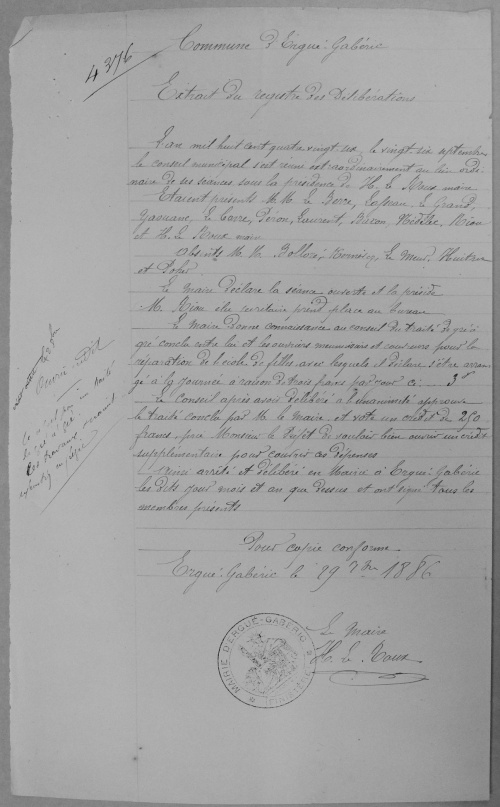 4376
Commune d'Ergué-Gabéric
Extrait du registre des Délibérations
L'an mil huit cent quatre vingt six, le vingt six septembre
le conseil municipal s'est réuni extraordinairement au lieu ordi-
naire de ses séances sous la présidence de H. Le Roux maire
Etaient présents M.M. Le Berre, Le Grand,
Laurent, Nédélec, Riou
et H. Le Roux maire
Absents M.M. Bolloré, Le Meur, Huitric
et
Le maire déclare la séance ouverte et la préside
M. Riou élu secrétaire prend place au bureau
Le Maire donne connaissance au conseil du traité de gré à
gré conclu entre lui et les ouvriers menuisiers et couvreurs pour la
réparation de l'école de filles, avec lesquels il déclare s'être arran-
gé à la journée à raison de trois francs par jour ci 3f
Le Conseil après avoir délibéré à l'unanimité approuve
le traité conclu par M. le maire et vote un crédit de 250
francs, prie Monsieur le Préfet de vouloir bien ouvrir un crédit
supplémentaire pour couvrir ces dépenses
Ainsi arrêté et délibéré en Mairie à Ergué-Gabéric
les dits jour mois et an que dessus et ont signé tous les
membres présents
Pour copie conforme
Ergué-Gabéric le 29 7bre 1886
Le Maire
H. Le Roux
MAIRIE D'ERGUÉ-GABÉRIC
Ouvrir crédit
traité
de gré à gré
Les travaux seront
exécutés en régie